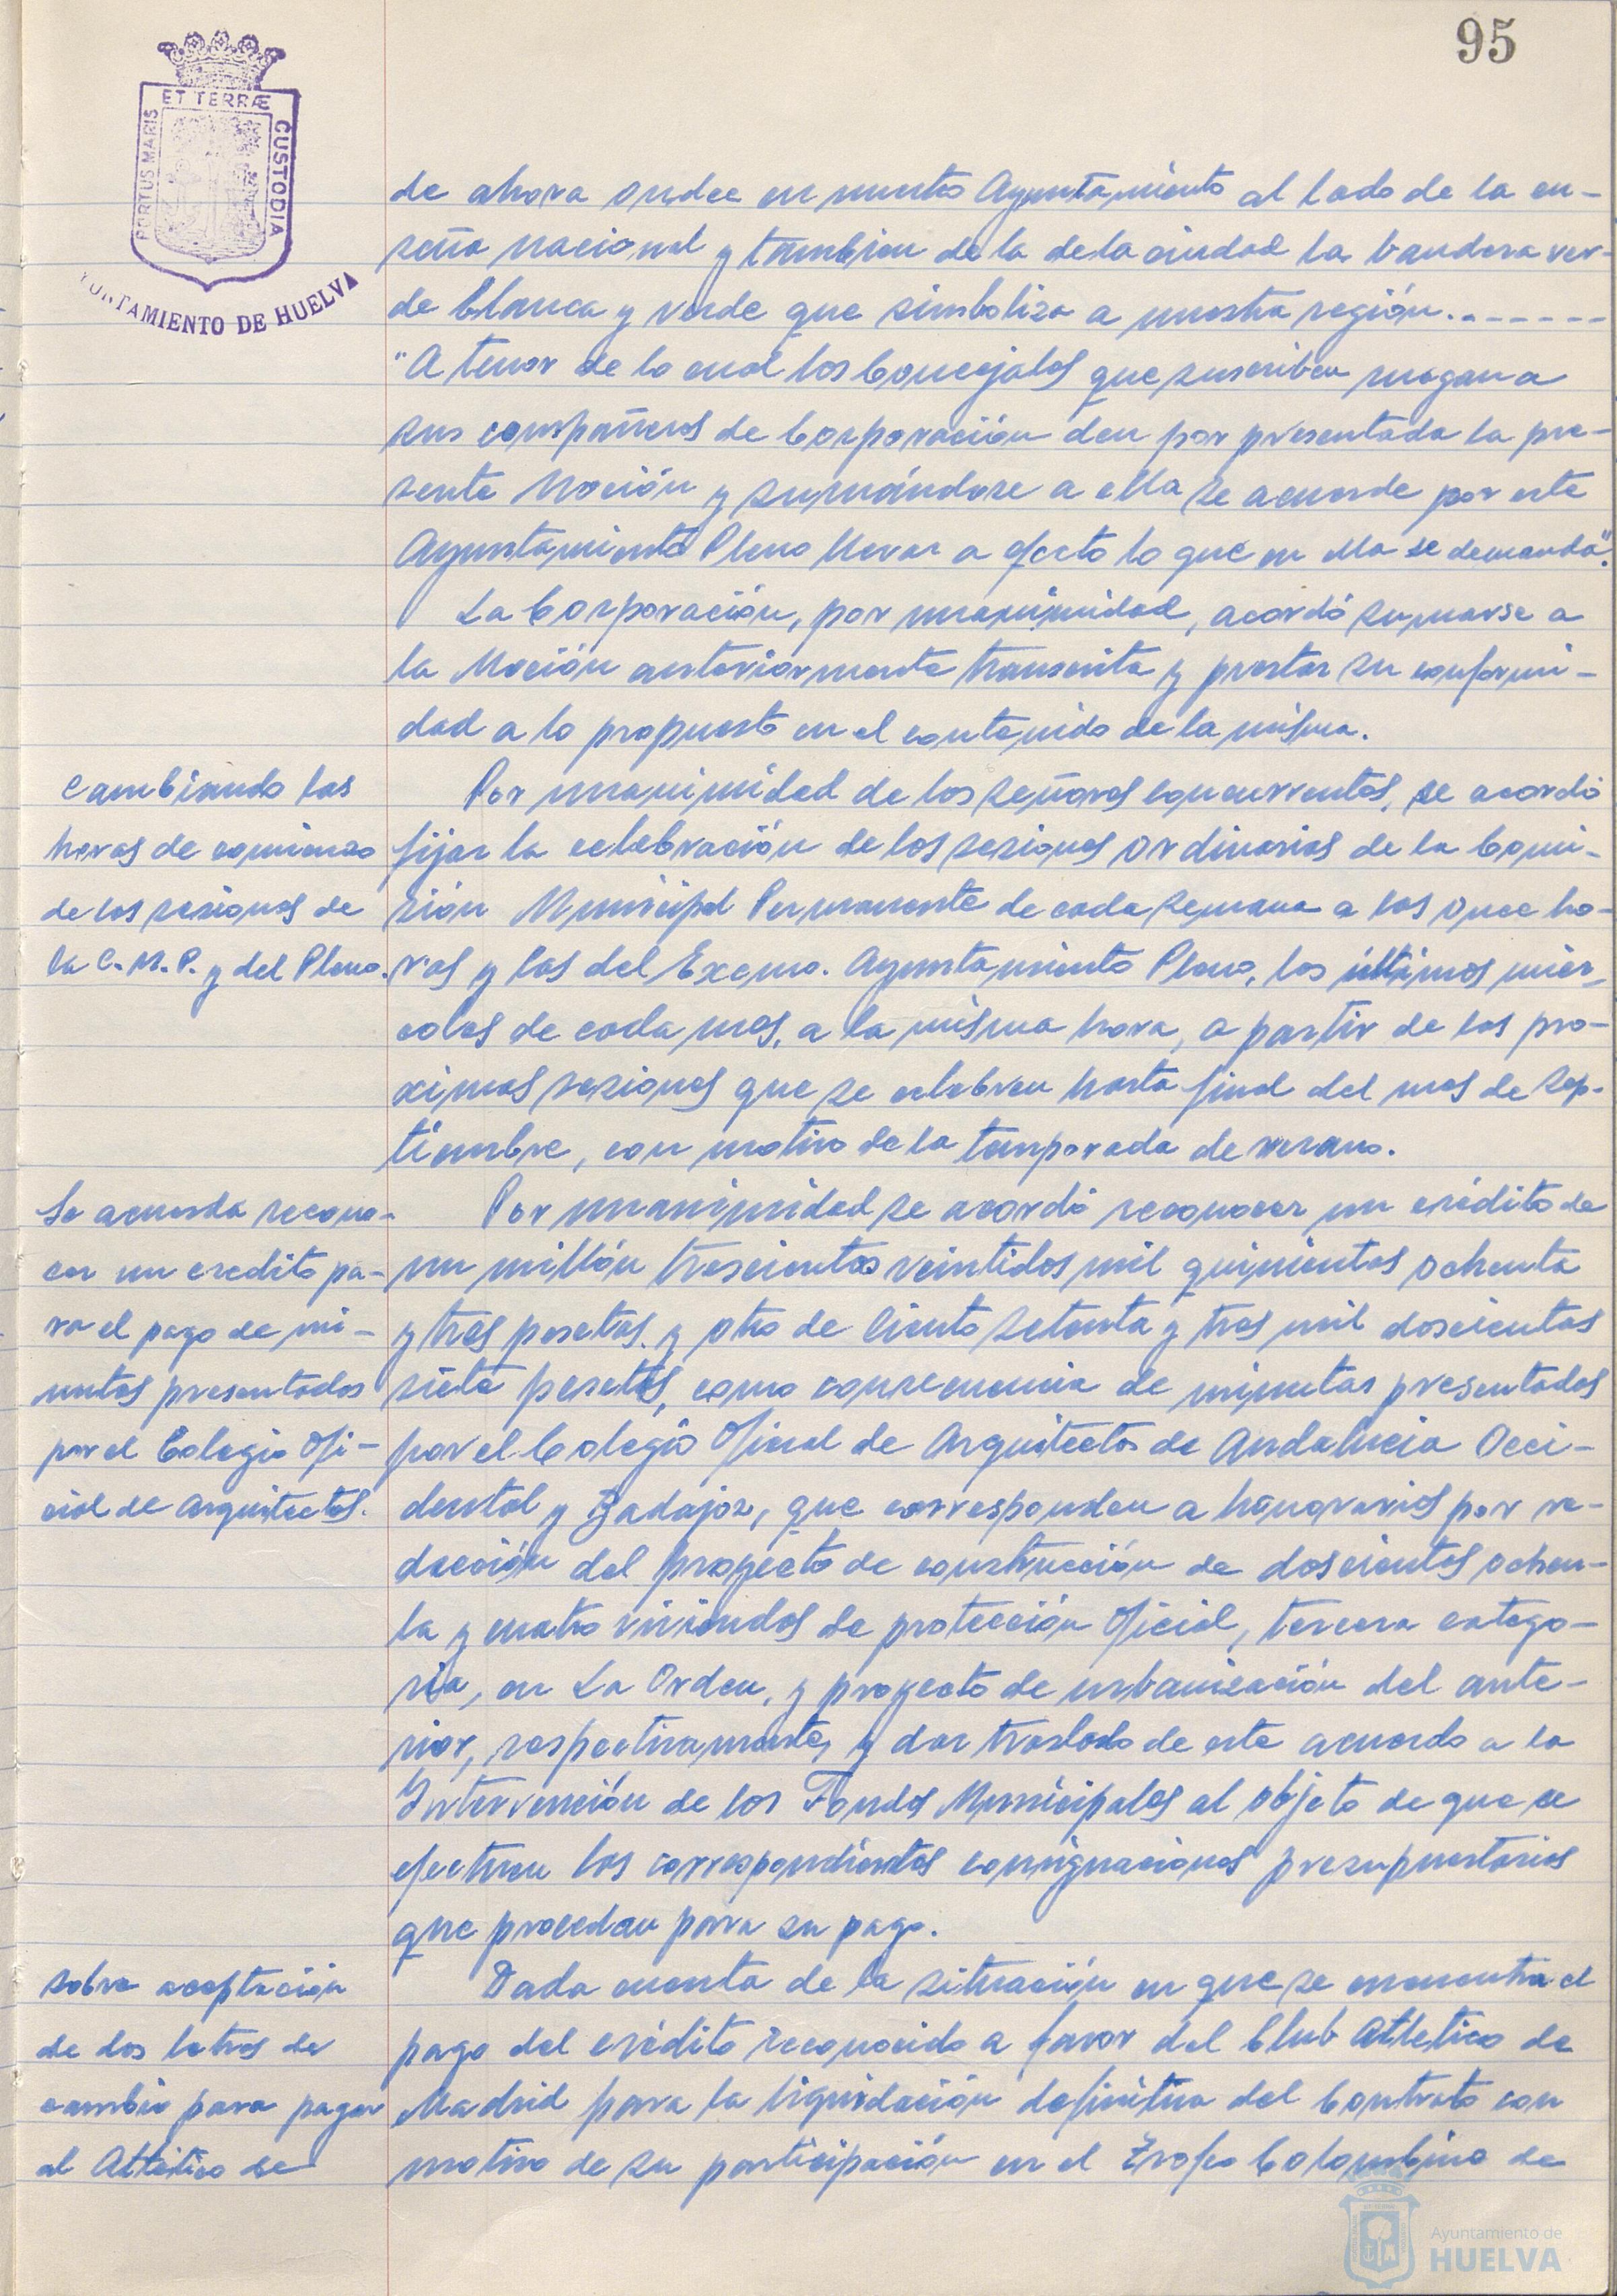 95
ET TERRÆ
PORTUS MARIS
CUSTODIA
UNTAMIENTO DE HUELVA
de ahora ondee en nuestro Ayuntamiento al lado de la en-
seña nacional y tambien de la de la ciudad la bandera ver-
de blanca y verde que simboliza a nuestra región.-------
"A tenor de lo cual los Concejales que suscriben ruegan a
sus compañeros de Corporación den por presentada la pre-
sente Moción y sumándose a ella se acuerde por este
Ayuntamiento Pleno llevar a efecto lo que en ella se demanda".
La Corporación, por unanimidad, acordó sumarse a
la Moción anteriormente transcrita y prestar su conformi-
dad a lo propuesto en el contenido de la misma.
Cambiando las
horas de comienzo
de las sesiones de
la C.M.P. y del Pleno.
Por unanimidad de los señores concurrentes, se acordó
fijar la celebración de las sesiones ordinarias de la Comi-
sión Municipal Permanente de cada semana a las once ho-
ras y las del Excmo. Ayuntamiento Pleno, los últimos miér-
coles de cada mes, a la misma hora, a partir de las pro-
ximas sesiones que se celebren hasta final del mes de Sep-
tiembre, con motivo de la temporada de verano.
Se acuerda recono-
cer un credito pa-
ra el pago de mi-
nutas presentadas
por el Colegio Ofi-
cial de Arquitectos.
Por unanimidad se acordó reconocer un crédito de
un millón trescientas veintidos mil quinientas ochenta
y tres pesetas y otro de ciento setenta y tres mil doscientas
siete pesetas, como consecuencia de minutas presentadas
por el Colegio Oficial de Arquitectos de Andalucia Occi-
dental y Badajoz, que corresponden a honorarios por re-
dacción del proyecto de construcción de doscientas ochen-
ta y cuatro viviendas de protección oficial, tercera catego-
ria, en La Orden, y proyecto de urbanización del ante-
rior, respectivamente, y dar traslado de este acuerdo a la
Intervención de los Fondos Municipales al objeto de que se
efectuen las correspondientes consignaciones presupuestarias
que procedan para su pago.
Sobre aceptación
de dos letras de
cambio para pagar
al Atlético de
Dada cuenta de la situación en que se encuentra el
pago del crédito reconocido a favor del Club Atletico de
Madrid para la liquidación definitiva del Contrato con
motivo de su participación en el Trofeo Colombino de
Ayuntamiento de
HUELVA